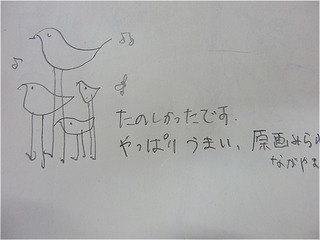 たのしかったです.
やっぱり うまい、原画みられ
ながやま